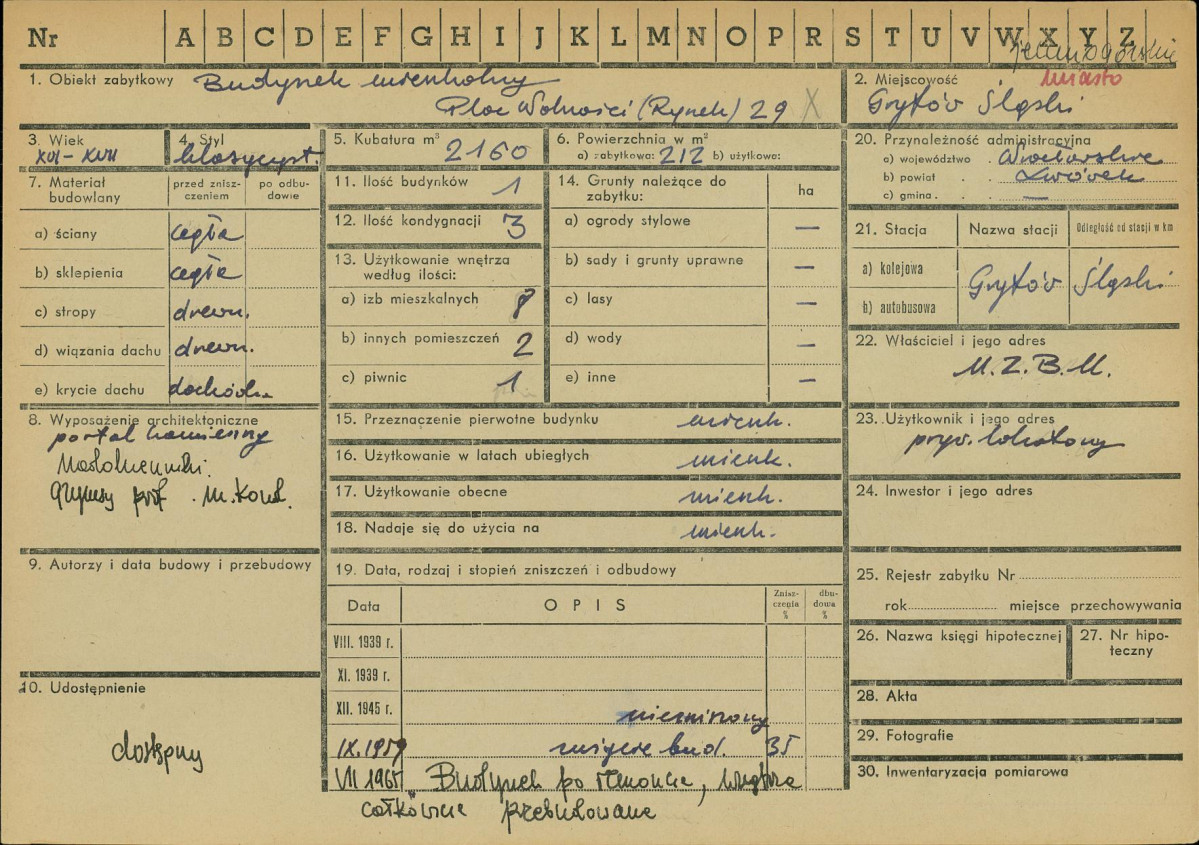 Nr A B C D E F G H I J K L M N O P R S T U V W X Y Z
jeleniogórskie
1. Obiekt zabytkowy Budynek mieszkalny
Plac Wolności (Rynek) 29 X
2. Miejscowość miasto
Gryfów Śląski
3. Wiek
XVI - XVII
4. Styl
klasycyst.
5. Kubatura m³ 2160
6. Powierzchnia w m²
a) zabytkowa: 212 b) użytkowe:
7. Materiał budowlany
przed zniszczeniem
po odbudowie
a) ściany cegła
b) sklepienia cegła
c) stropy drewn.
d) wiązania dachu drewn.
e) krycie dachu dachówk.
8. Wyposażenie architektoniczne
portal kamienny
gzymsy prof.
9. Autorzy i data budowy i przebudowy
10. Udostępnienie
dostępny
11. Ilość budynków 1
12. Ilość kondygnacji 3
13. Użytkowanie wnętrza
według ilości:
a) izb mieszkalnych 8
b) innych pomieszczeń 2
c) piwnic 1
14. Grunty należące do
zabytku:
ha
a) ogrody stylowe —
b) sady i grunty uprawne —
c) lasy —
d) wody —
e) inne —
15. Przeznaczenie pierwotne budynku mieszk.
16. Użytkowanie w latach ubiegłych mieszk.
17. Użytkowanie obecne mieszk.
18. Nadaje się do użycia na mieszk.
19. Data, rodzaj i stopień zniszczeń i odbudowy
Data OPIS Zniszczenia % dbudowa %
VIII. 1939 r.
XI. 1939 r.
XII. 1945 r. niezniszczony
IX. 1959 bud. 35
VII 1965 Budynek po remoncie, wnętrza
całkowicie przebudowane
20. Przynależność administracyjna
a) województwo . Wrocławskie
b) powiat . . Lwówek
c) gmina . . —
21. Stacja Nazwa stacji Odległość od stacji w km
a) kolejowa
b) autobusowa
Gryfów Śląski
22. Właściciel i jego adres
M.Z.B.M.
23. Użytkownik i jego adres
pryw. lokatorzy
24. Inwestor i jego adres
25. Rejestr zabytku Nr
rok miejsce przechowywania
26. Nazwa księgi hipotecznej
27. Nr hipoteczny
28. Akta
29. Fotografie
30. Inwentaryzacja pomiarowa